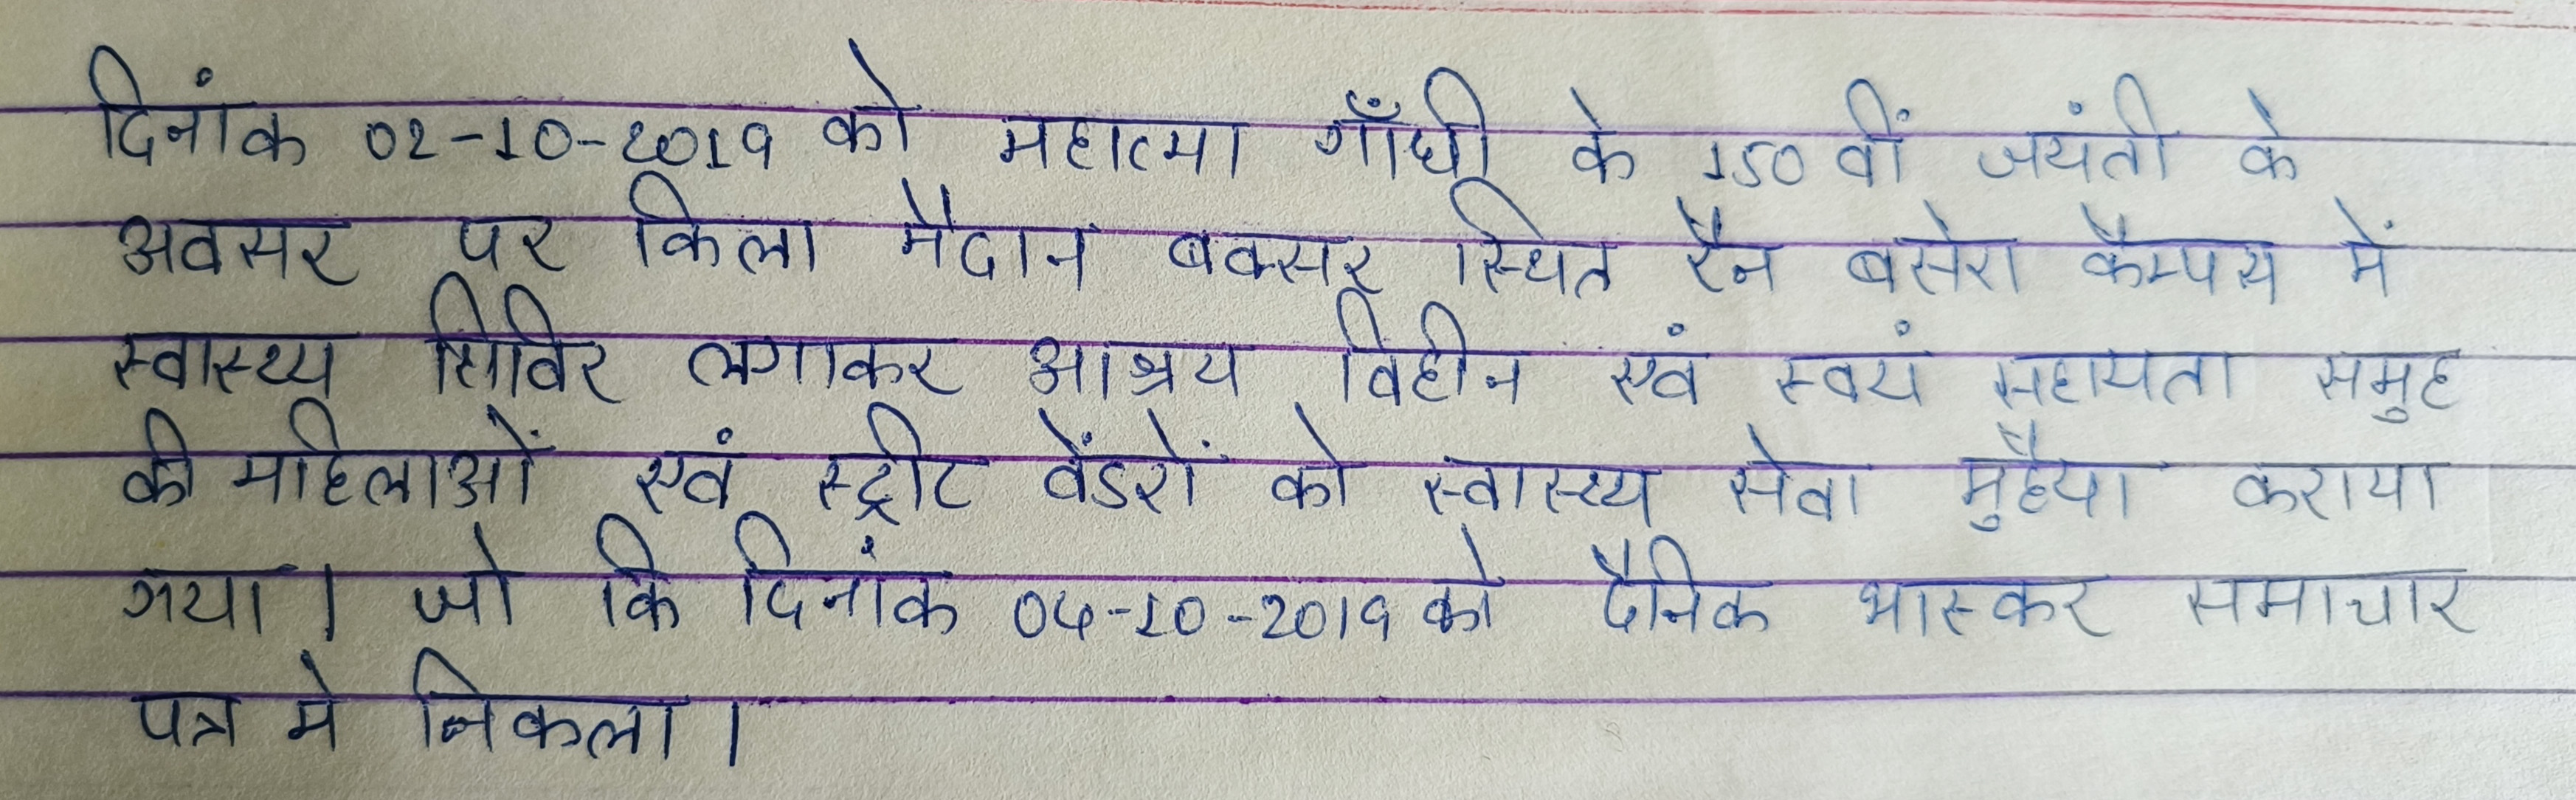 दिनांक 02-10-2019 को महात्मा गाँधी के 150 वीं जयंती के
अवसर पर किला मैदान बक्सर स्थित रैन बसेरा कैम्पस में
स्वास्थ्य शिविर लगाकर आश्रय विहीन एवं स्वयं सहायता समुह
की महिलाओं एवं स्ट्रीट वेंडरों को स्वास्थ्य सेवा मुहैया कराया
गया। जो कि दिनांक 04-10-2019 को दैनिक भास्कर समाचार
पत्र मे निकला।